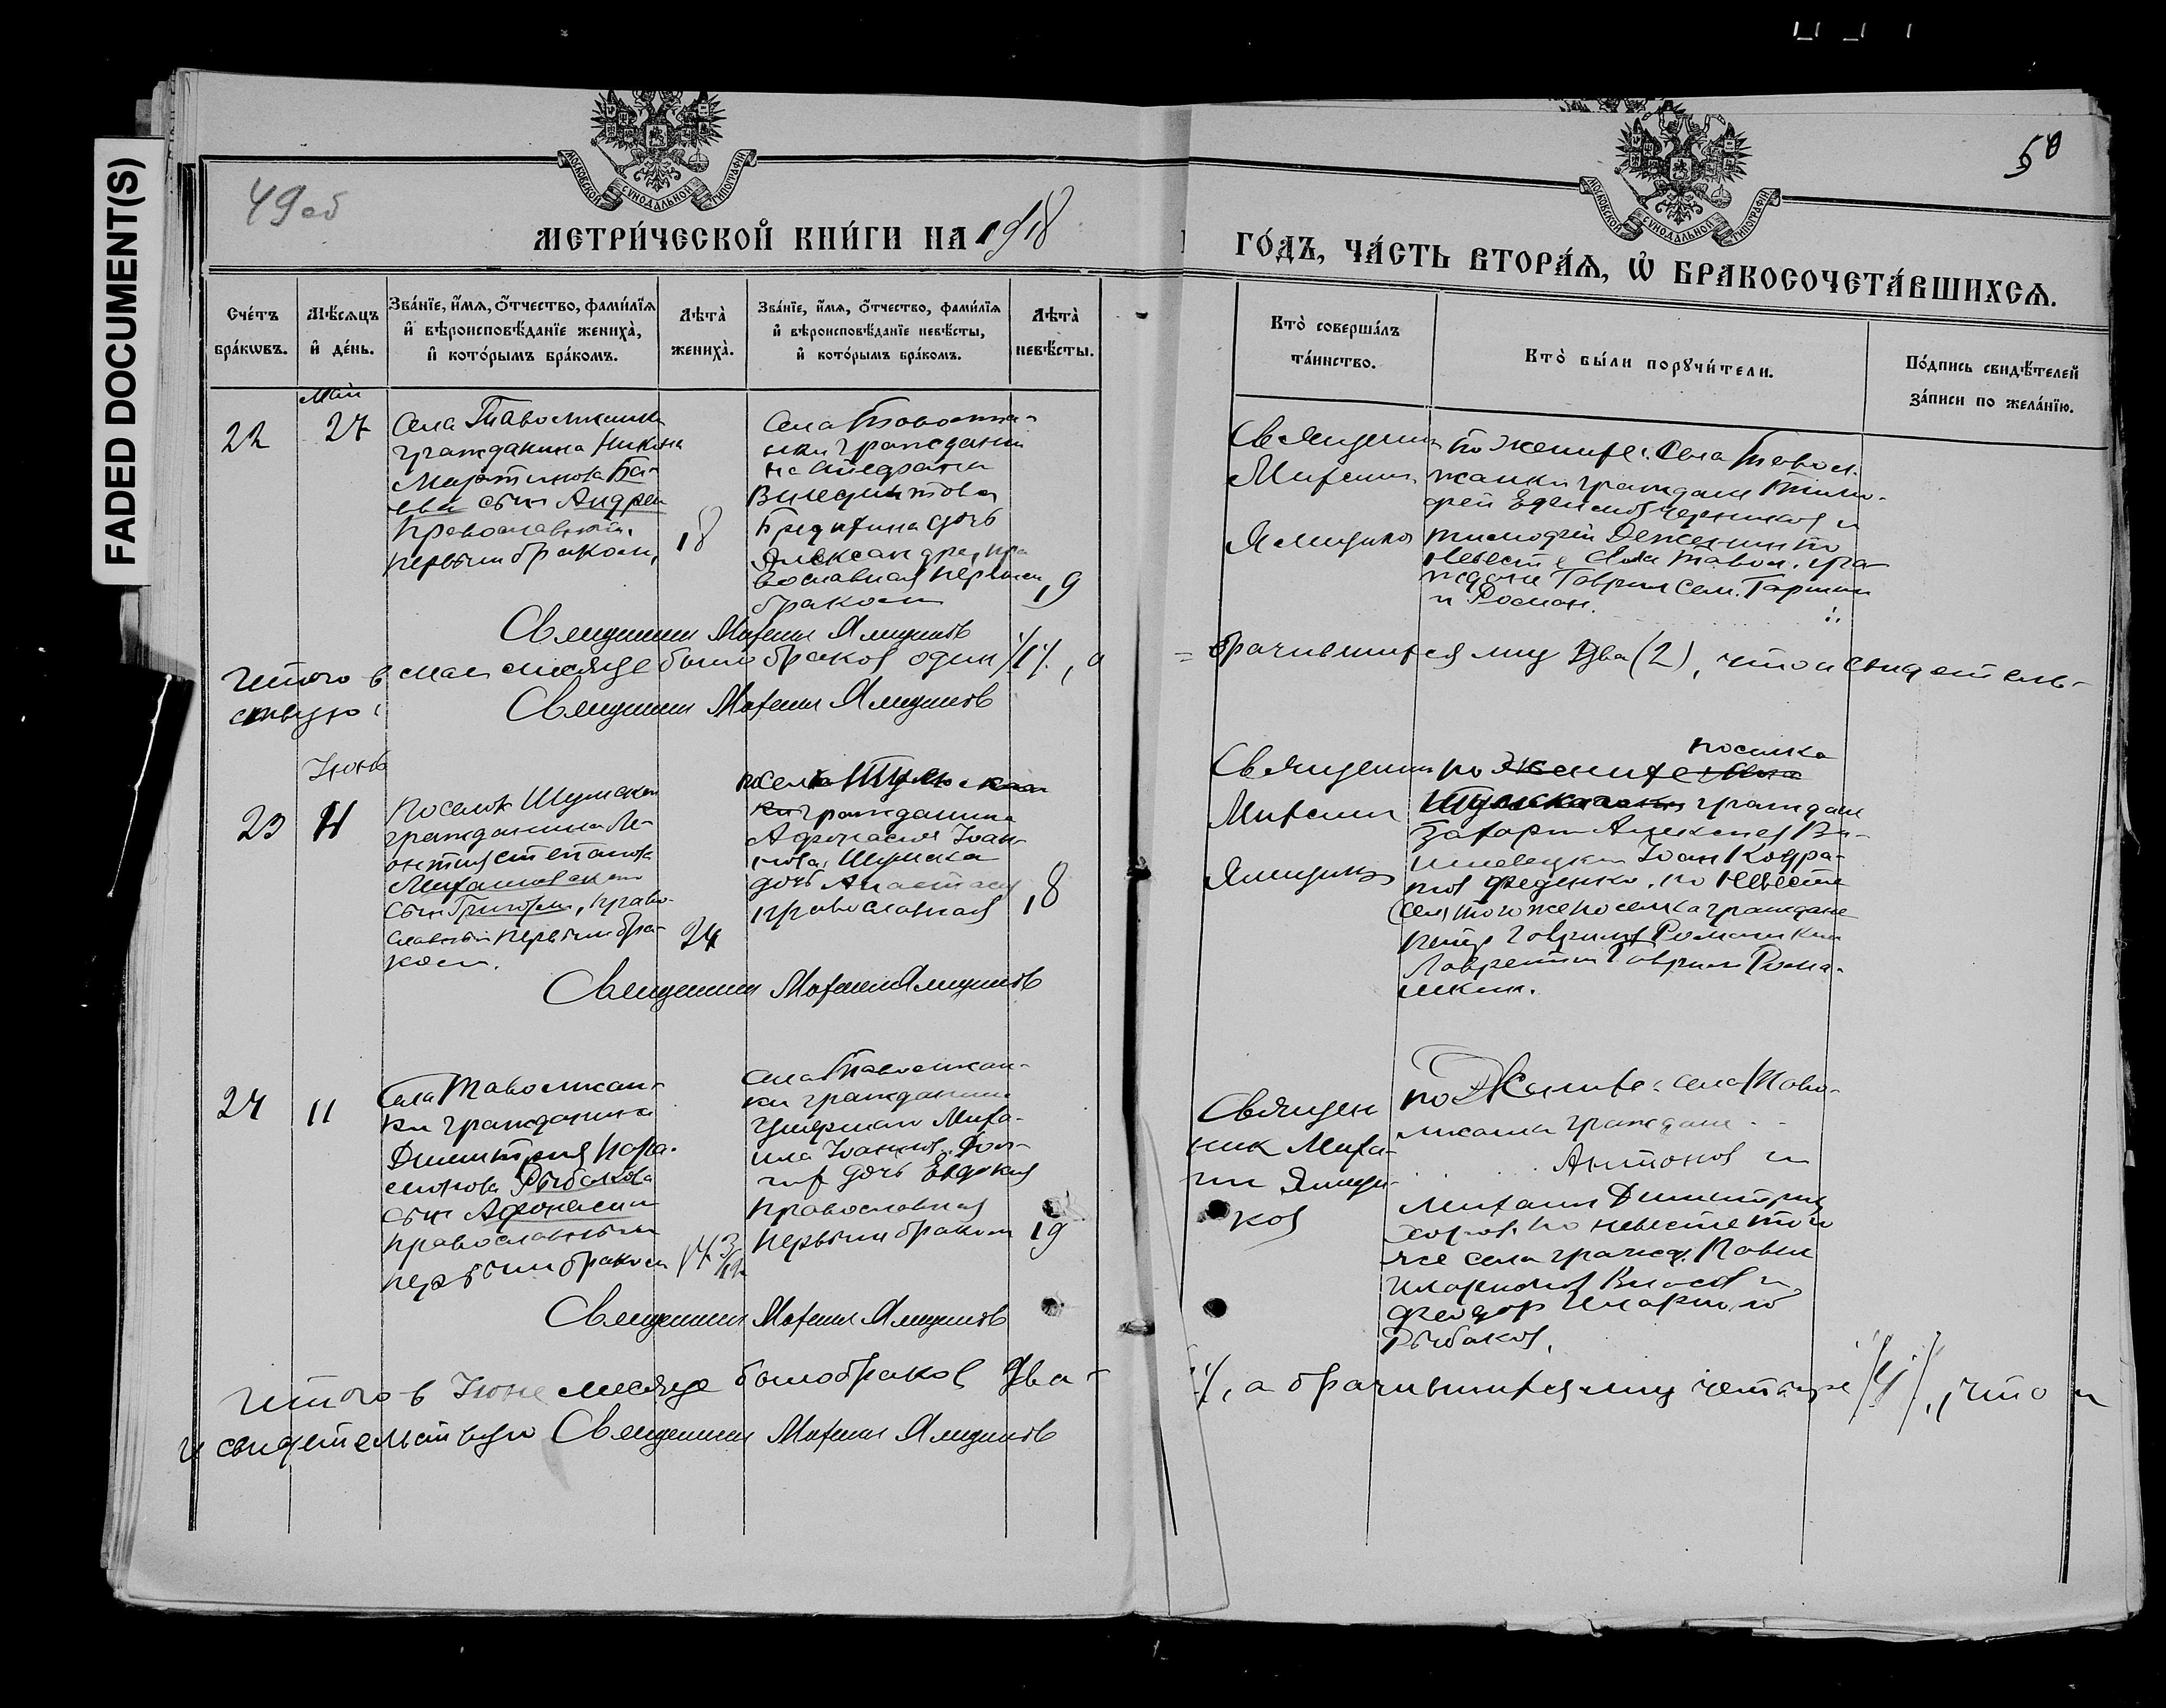 FADED DOCUMENT(S)
49об
50
МОСКОВСКОЙ СѴНОДАЛЬНОЙ ТИПОГРАФІИ
МОСКОВСКОЙ СѴНОДАЛЬНОЙ ТИПОГРАФІИ
МЕТРИ́ЧЕСКОЙ КНИ́ГИ НА 1918
ГО́ДЪ, ЧА́СТЬ ВТОРА́Я, Ѡ҆ БРАКОСОЧЕТА́ВШИХСЯ.
Сче́тъ
бра́кѡвъ.
Мѣ́сяцъ
и҆ де́нь.
Зва́нїе, и҆́мя, ѻ҆́тчество, фами́лїя
и҆ вѣроисповѣ́данїе жениха̀,
и҆ кото́рымъ бра́комъ.
Лѣта̀
жениха̀.
Зва́нїе, и҆́мя, ѻ҆́тчество, фами́лїя
и҆ вѣроисповѣ́данїе невѣ́сты,
и҆ кото́рымъ бра́комъ.
Лѣта̀
невѣ́сты.
Кто̀ соверша́лъ
та́инство.
Кто̀ бы́ли порꙋчи́тели.
По́дпись свидѣ́телей
за́писи по жела́нїю.
Май
22
27
Села Таволжанки
гражданина Никона
Мартинова Ба-
ева сын Андрей
Православный,
первым браком,
18
Села Таволжа-
нки граждани
на Стефана
дочь
Александра, пра
вославная первым
браком
19
Священник
Михаил
Ямщиков
по жениху: Села Тавол.
жанки граждане
и
Тимофей
невесте Села Тавол. гра-
ждане Гаврил Сем.
и Роман.
Священник Михаил Ямщиков
Итого в мае месяце было браков один /1/, а
брачившихся лиц два (2), что и свидетель-
ствую:
Священник Михаил Ямщиков
Июнь
23
11
Поселок Шумской
гражданина Ле-
онтия Степанова
Михайловского
сын Григорий, право-
славный первым бра-
ком.
24
поселка
гражданина
Афонасия Иоан-
нова, Шумска
дочь Анастасия
православная
18
Священник
Михаил
Ямщиков
поселка
по жениху Села
граждане
Захарий Алексеев Ви-
Иоан Кодра-
тов Феденко. по невесте
того же поселка граждане
Гаврилов Ромашкин
Лаврентий Гаврил Рома-
шкин.
Священник Михаил Ямщиков
24
11
Села Таволжан-
ки гражданина
Димитрия Пара-
монова Рыбакова
сын Афонасий
православный
первым браком
Села Таволжан-
ки гражданина
умершаго Миха-
ила Иоаннов.
дочь Евдокия
православная
первым браком
19
Священ
ник Миха-
ил Ямщи-
ков
по Жениху: села Таво-
лжанки граждане
Антонов и
Михаил Димитрия
по невесте того
же села гражд. Павел
Власов и
Феодор
Рыбаков.
Священник Михаил Ямщиков
Итого в Июне месяце было браков два-
а брачившихся лиц четыре /4/, что и
и свидетельствую Священник Михаил Ямщиков